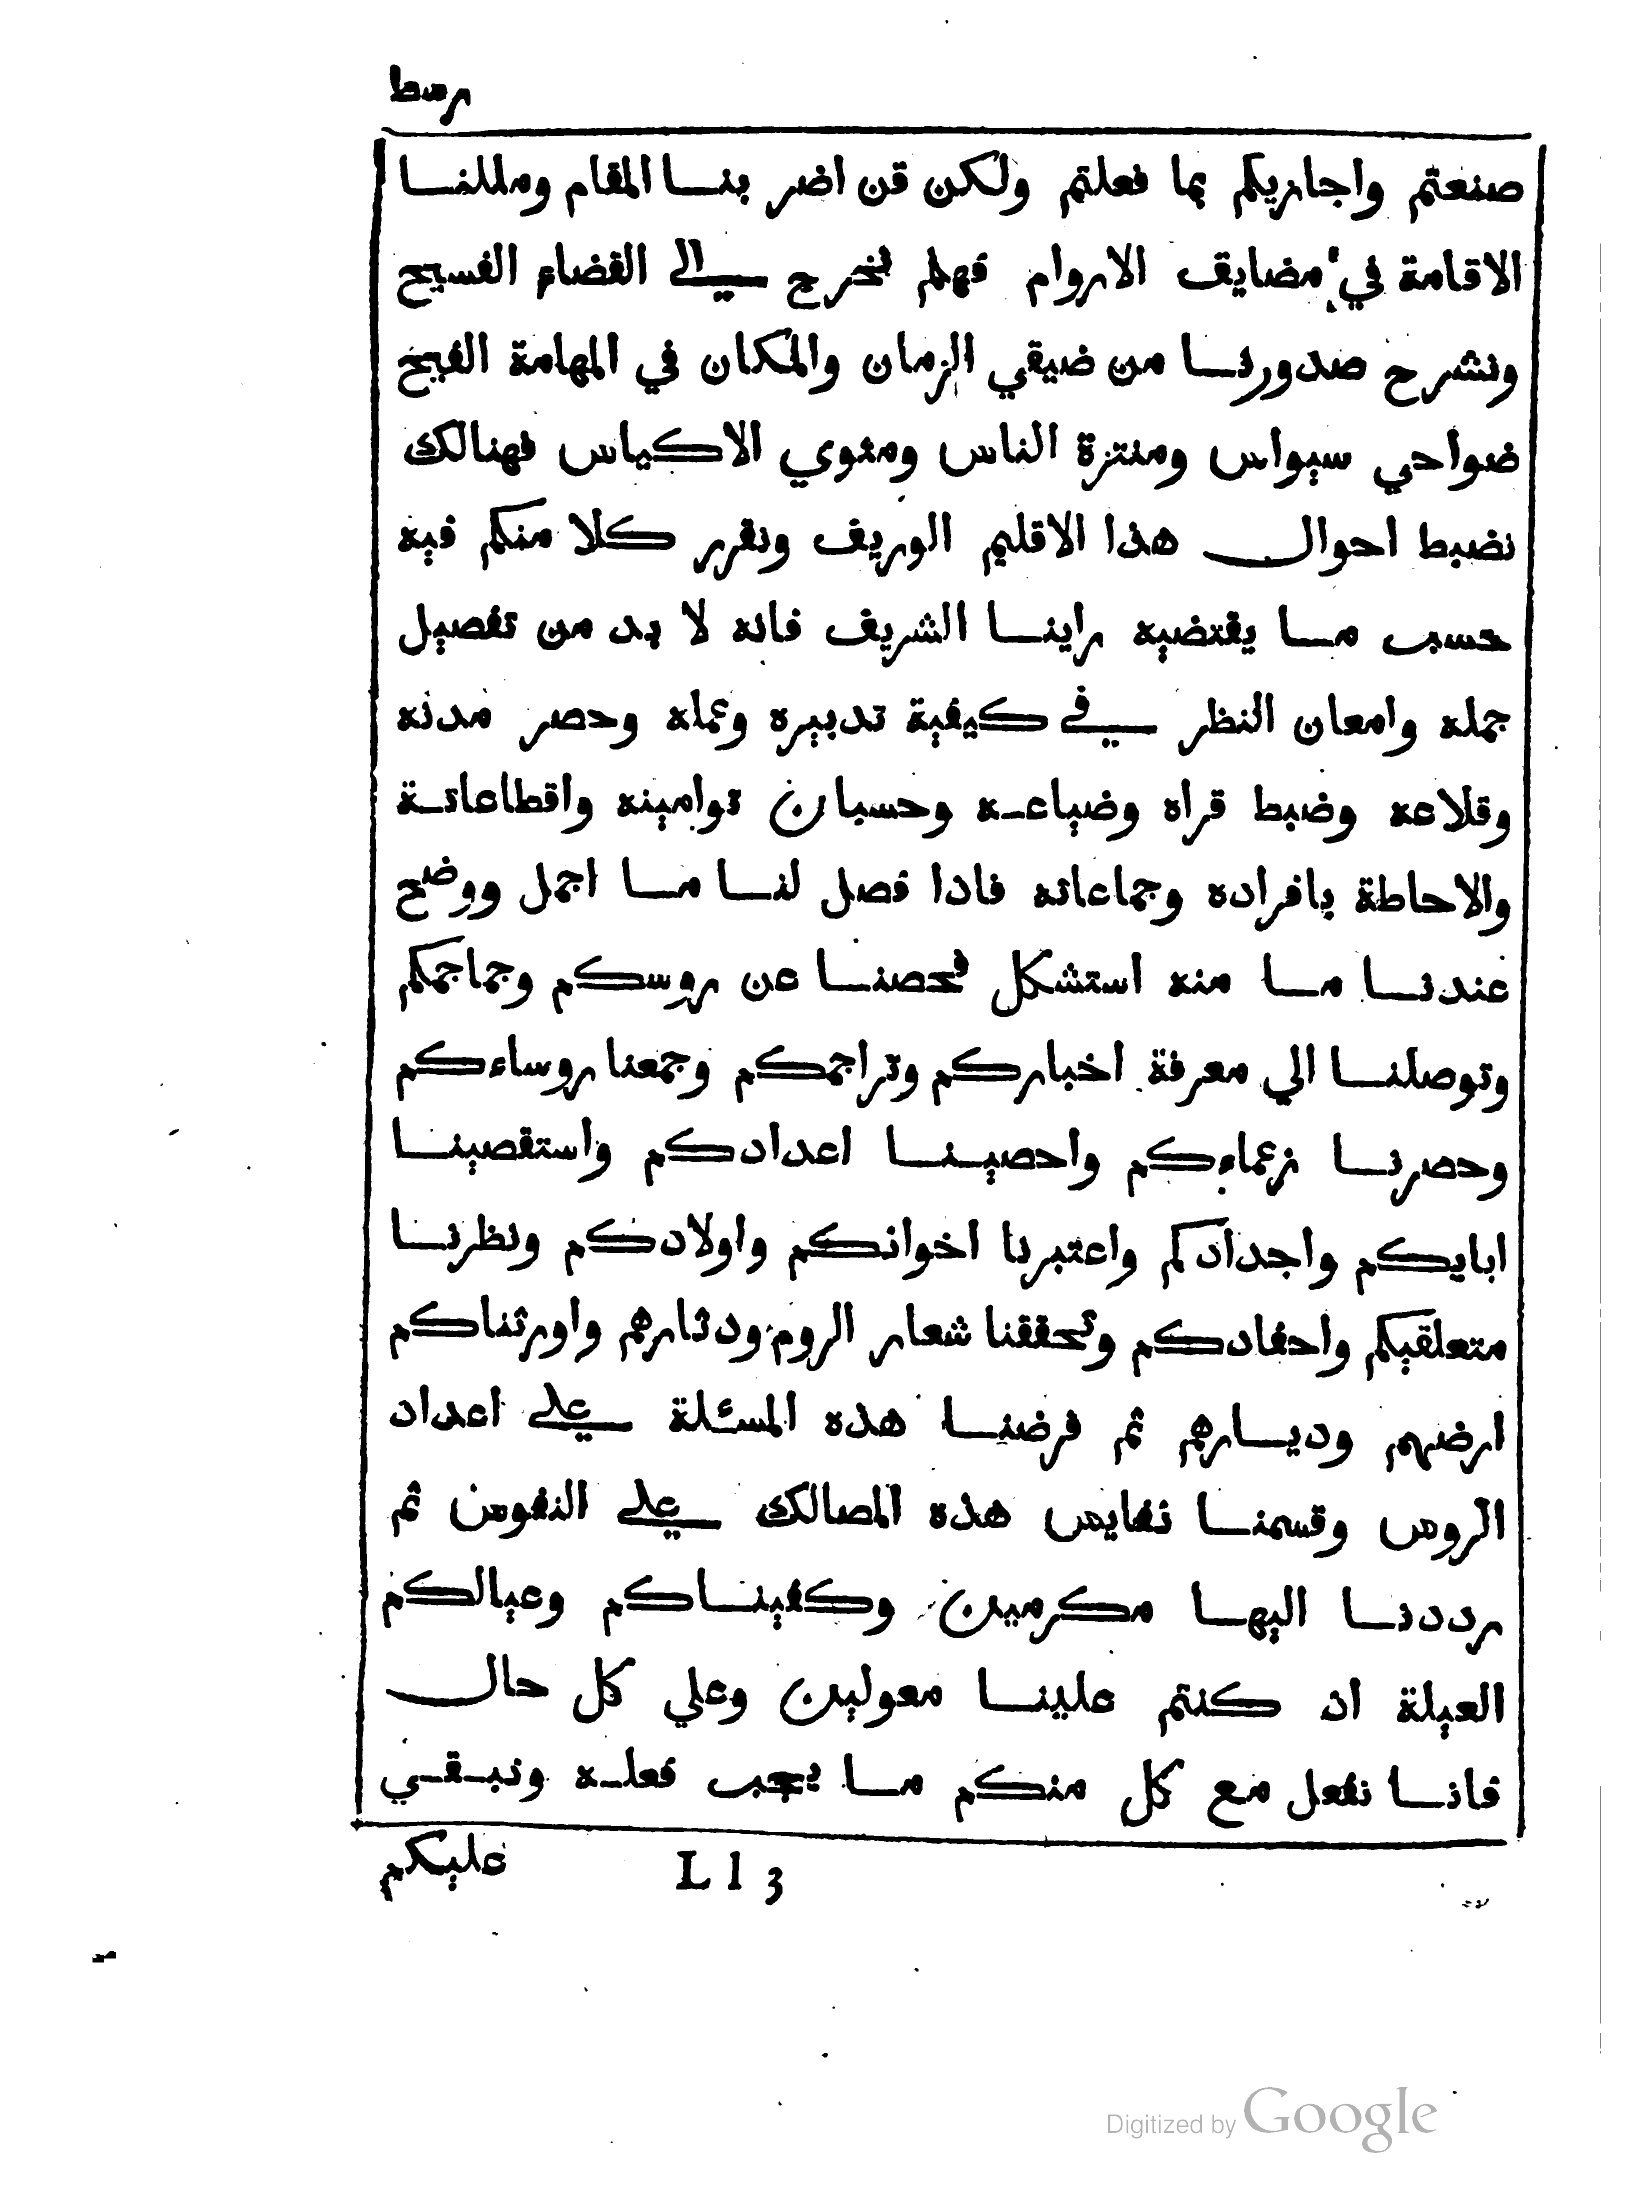 رسط
صنعتم واجازيكم بما فعلتم ولكن قن اضر بنا المقام ومللنا
الاقامة في مضايق الاروام فهلم نخرج الي الفضاء الفسيح
ونشرح صدورنا من ضيقي الزمان والمكان في المهامة الفيح
ضواحي سيواس ومنتزة الناس ومثوي الاكياس فهنالك
نضبط احوال هذا الاقليم الوريف ونقرر كلا منكم فيه
حسب ما يقتضيه راينا الشريف فانه لا بد من تفصيل
جمله وامعان النظر في كيفية تدبيره وعمله وحصر مدنه
وقلاعه وضبط قراه وضياعه وحسبان توامينه واقطاعاتة
والاحاطة بافراده وجماعاته فاذا فصل لنا ما اجمل ووضح
عندنا ما منه استشكل فحصنا عن روسكم وجماجمكم
وتوصلنا الي معرفة اخباركم وتراجمكم وجمعنا روساءكم
وحصرنا زعماءكم واحصينا اعدادكم واستقصينا
ابايكم واجدادكم واعتبرنا اخوانكم واولادكم ونظرنا
متعلقيكم واحفادكم وتحققنا شعار الروم ودثارهم واورثناكم
ارضهم وديارهم ثم فرضنا هذه المسئلة علي اعداد
الروس وقسمنا نفايس هذه المصالك علي النفوس ثم
رددنا اليها مكرمين وكفيناكم وعيالكم
العيلة ان كنتم علينا معولين وعلي كل حال
فانا نفعل مع كل منكم ما يجب فعله ونبقي
عليكم
L l 3
Digitized by Google